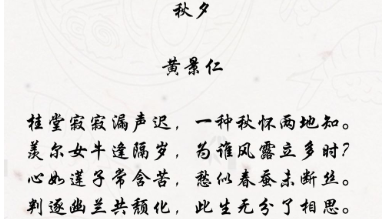 秋夕
黄景仁
桂堂寂寂漏声迟，一种秋怀两地知。
羡尔女牛逢隔岁，为谁风露立多时？
心如莲子常含苦，愁似春蚕未断丝。
判逐幽兰共颓化，此生无分了相思。